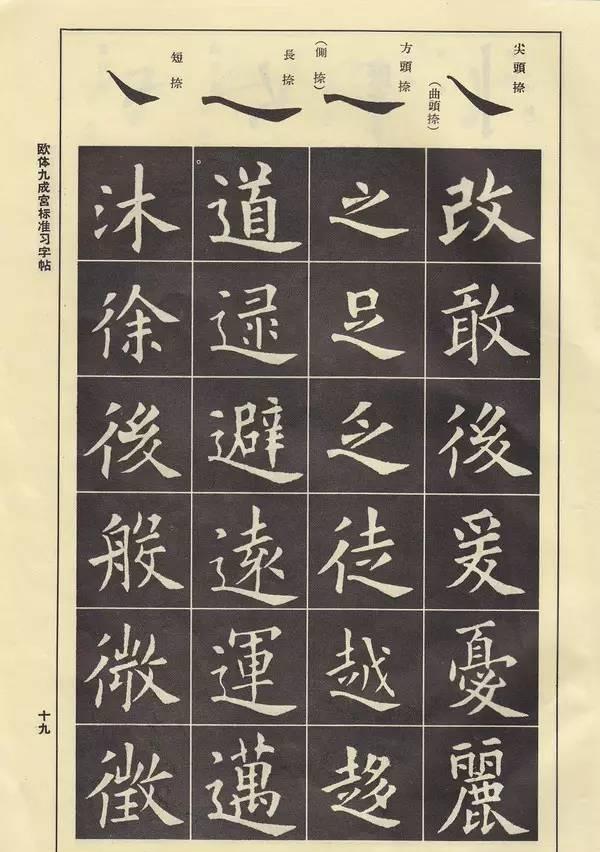 尖頭捺
(曲頭捺)
改敢後爰憂麗
方頭捺
(側捺)
之足乏徒越趍
長捺
道逯避遠運邁
短捺
沐徐後般微徵
欧体九成宮标准习字帖
十九